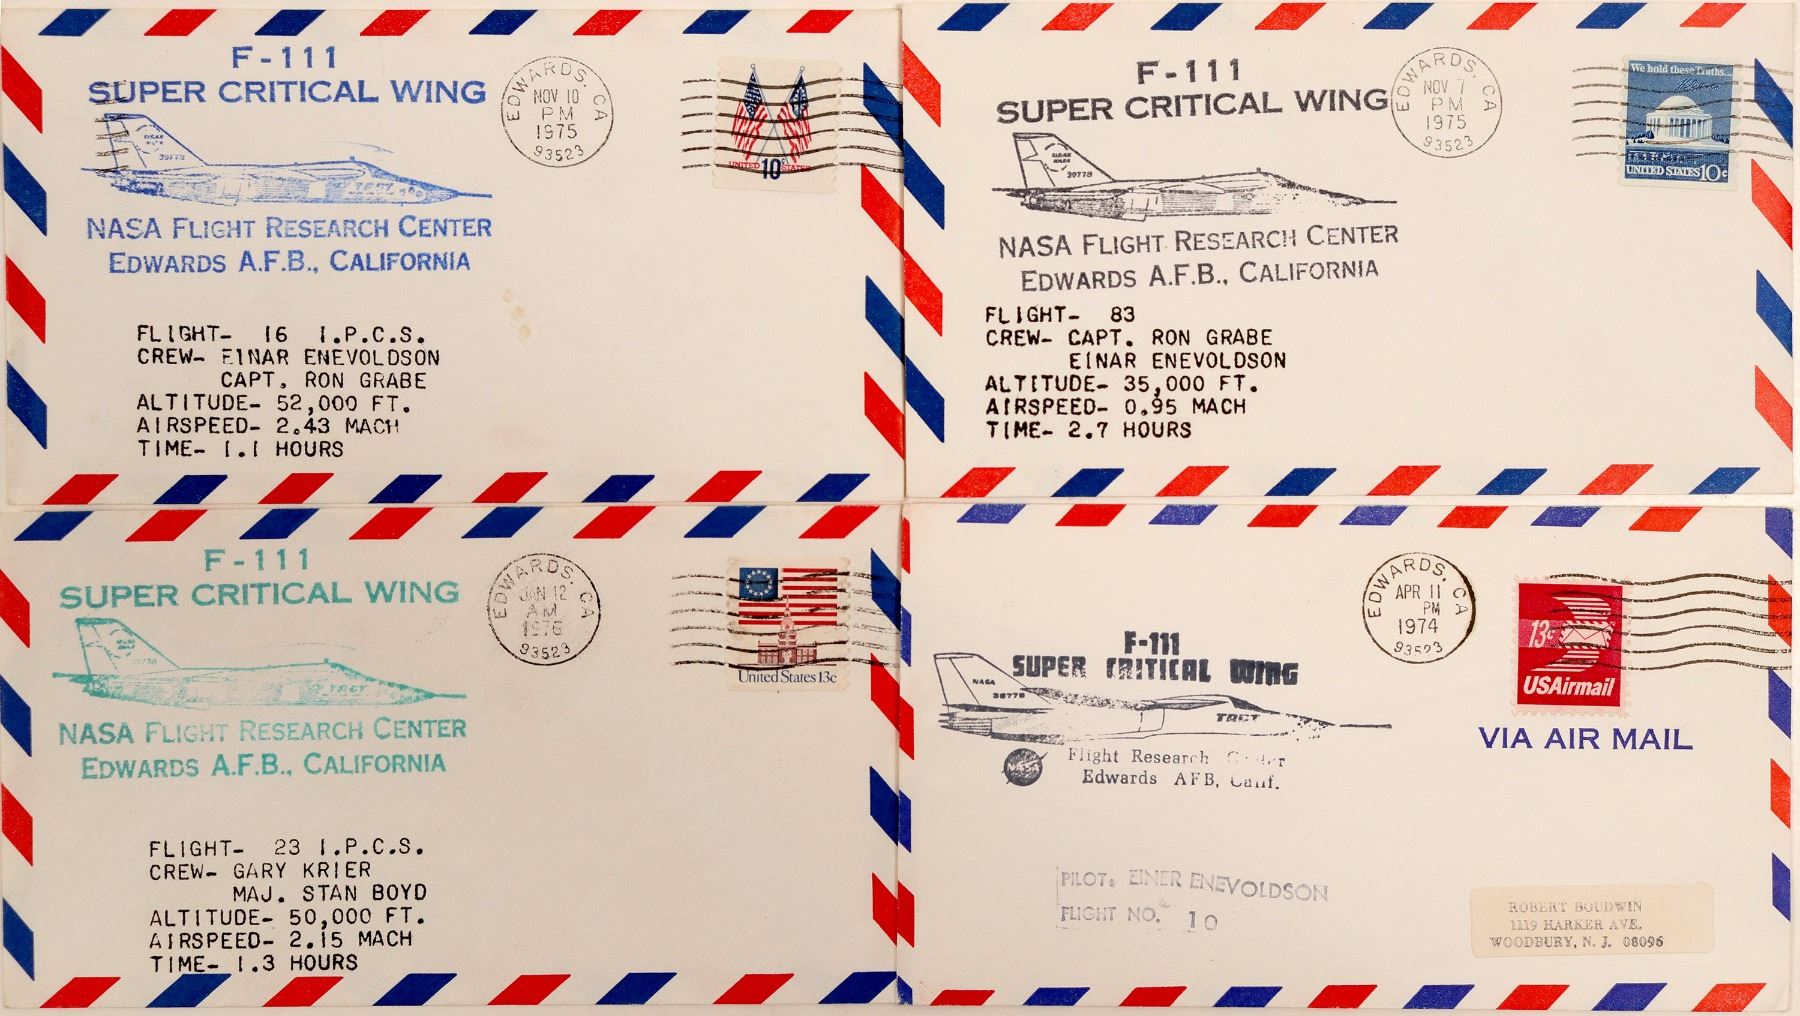 F-111
SUPER CRITICAL WING
NASA FLIGHT RESEARCH CENTER
EDWARDS A.F.B., CALIFORNIA
EDWARDS, CA
NOV 10
PM
1975
93523
UNITED STATES
10c
FLIGHT- 16 I.P.C.S.
CREW- EINAR ENEVOLDSON
CAPT. RON GRABE
ALTITUDE- 52,000 FT.
AIRSPEED- 2.43 MACH
TIME- 1.1 HOURS
F-111
SUPER CRITICAL WING
39778
NASA FLIGHT RESEARCH CENTER
EDWARDS A.F.B., CALIFORNIA
EDWARDS, CA
NOV 7
PM
1975
93523
We hold these Truths...
UNITED STATES 10c
FLIGHT- 83
CREW- CAPT. RON GRABE
EINAR ENEVOLDSON
ALTITUDE- 35,000 FT.
AIRSPEED- 0.95 MACH
TIME- 2.7 HOURS
F-111
SUPER CRITICAL WING
TACT
NASA FLIGHT RESEARCH CENTER
EDWARDS A.F.B., CALIFORNIA
EDWARDS, CA
JAN 12
AM
1976
93523
United States 13c
FLIGHT- 23 I.P.C.S.
CREW- GARY KRIER
MAJ. STAN BOYD
ALTITUDE- 50,000 FT.
AIRSPEED- 2.15 MACH
TIME- 1.3 HOURS
F-111
SUPER CRITICAL WING
NASA
TACT
NASA
Flight Research
Edwards AFB, Calif.
EDWARDS, CA
APR 11
PM
1974
93523
13c
USAirmail
VIA AIR MAIL
PILOT. EINER ENEVOLDSON
FLIGHT NO. 10
ROBERT BOUDWIN
1119 HARKER AVE.
WOODBURY, N. J. 08096